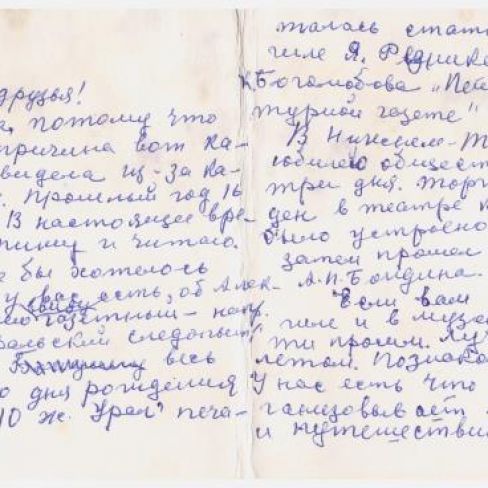 друзья!
, потому что
причина вот ка-
видела из-за ка-
. Прошлый год 16
В настоящее вре-
пишу и читаю.
бы хотелось
у вас есть, об Алек-
газетный - напр.
ральский следопыт,
весь
дня рождения
10 ж. Урал" печа-
талась стат
гиле Я. Редник
К. Боголюбова "Пе
турной газете"
В Нижнем-Т
юбилею общест
три дня. Торж
ден в театре
было устроено
затем прошел
А.П. Бондина.
Если вам
гиле и в музе
ти прошли. Лу
летом. Познако
У нас есть что
ганизовывает
и путешестви